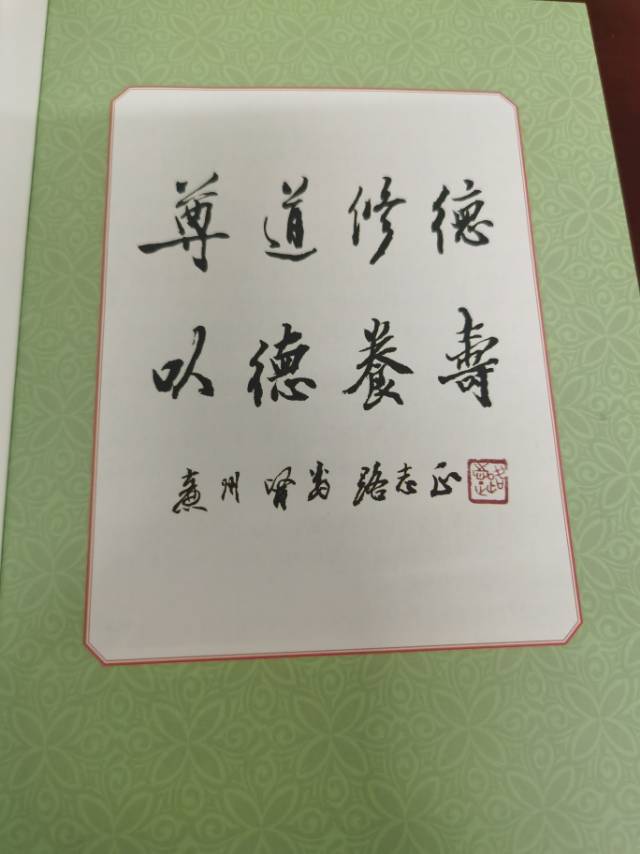 尊道修德
以德養壽
州 路志正